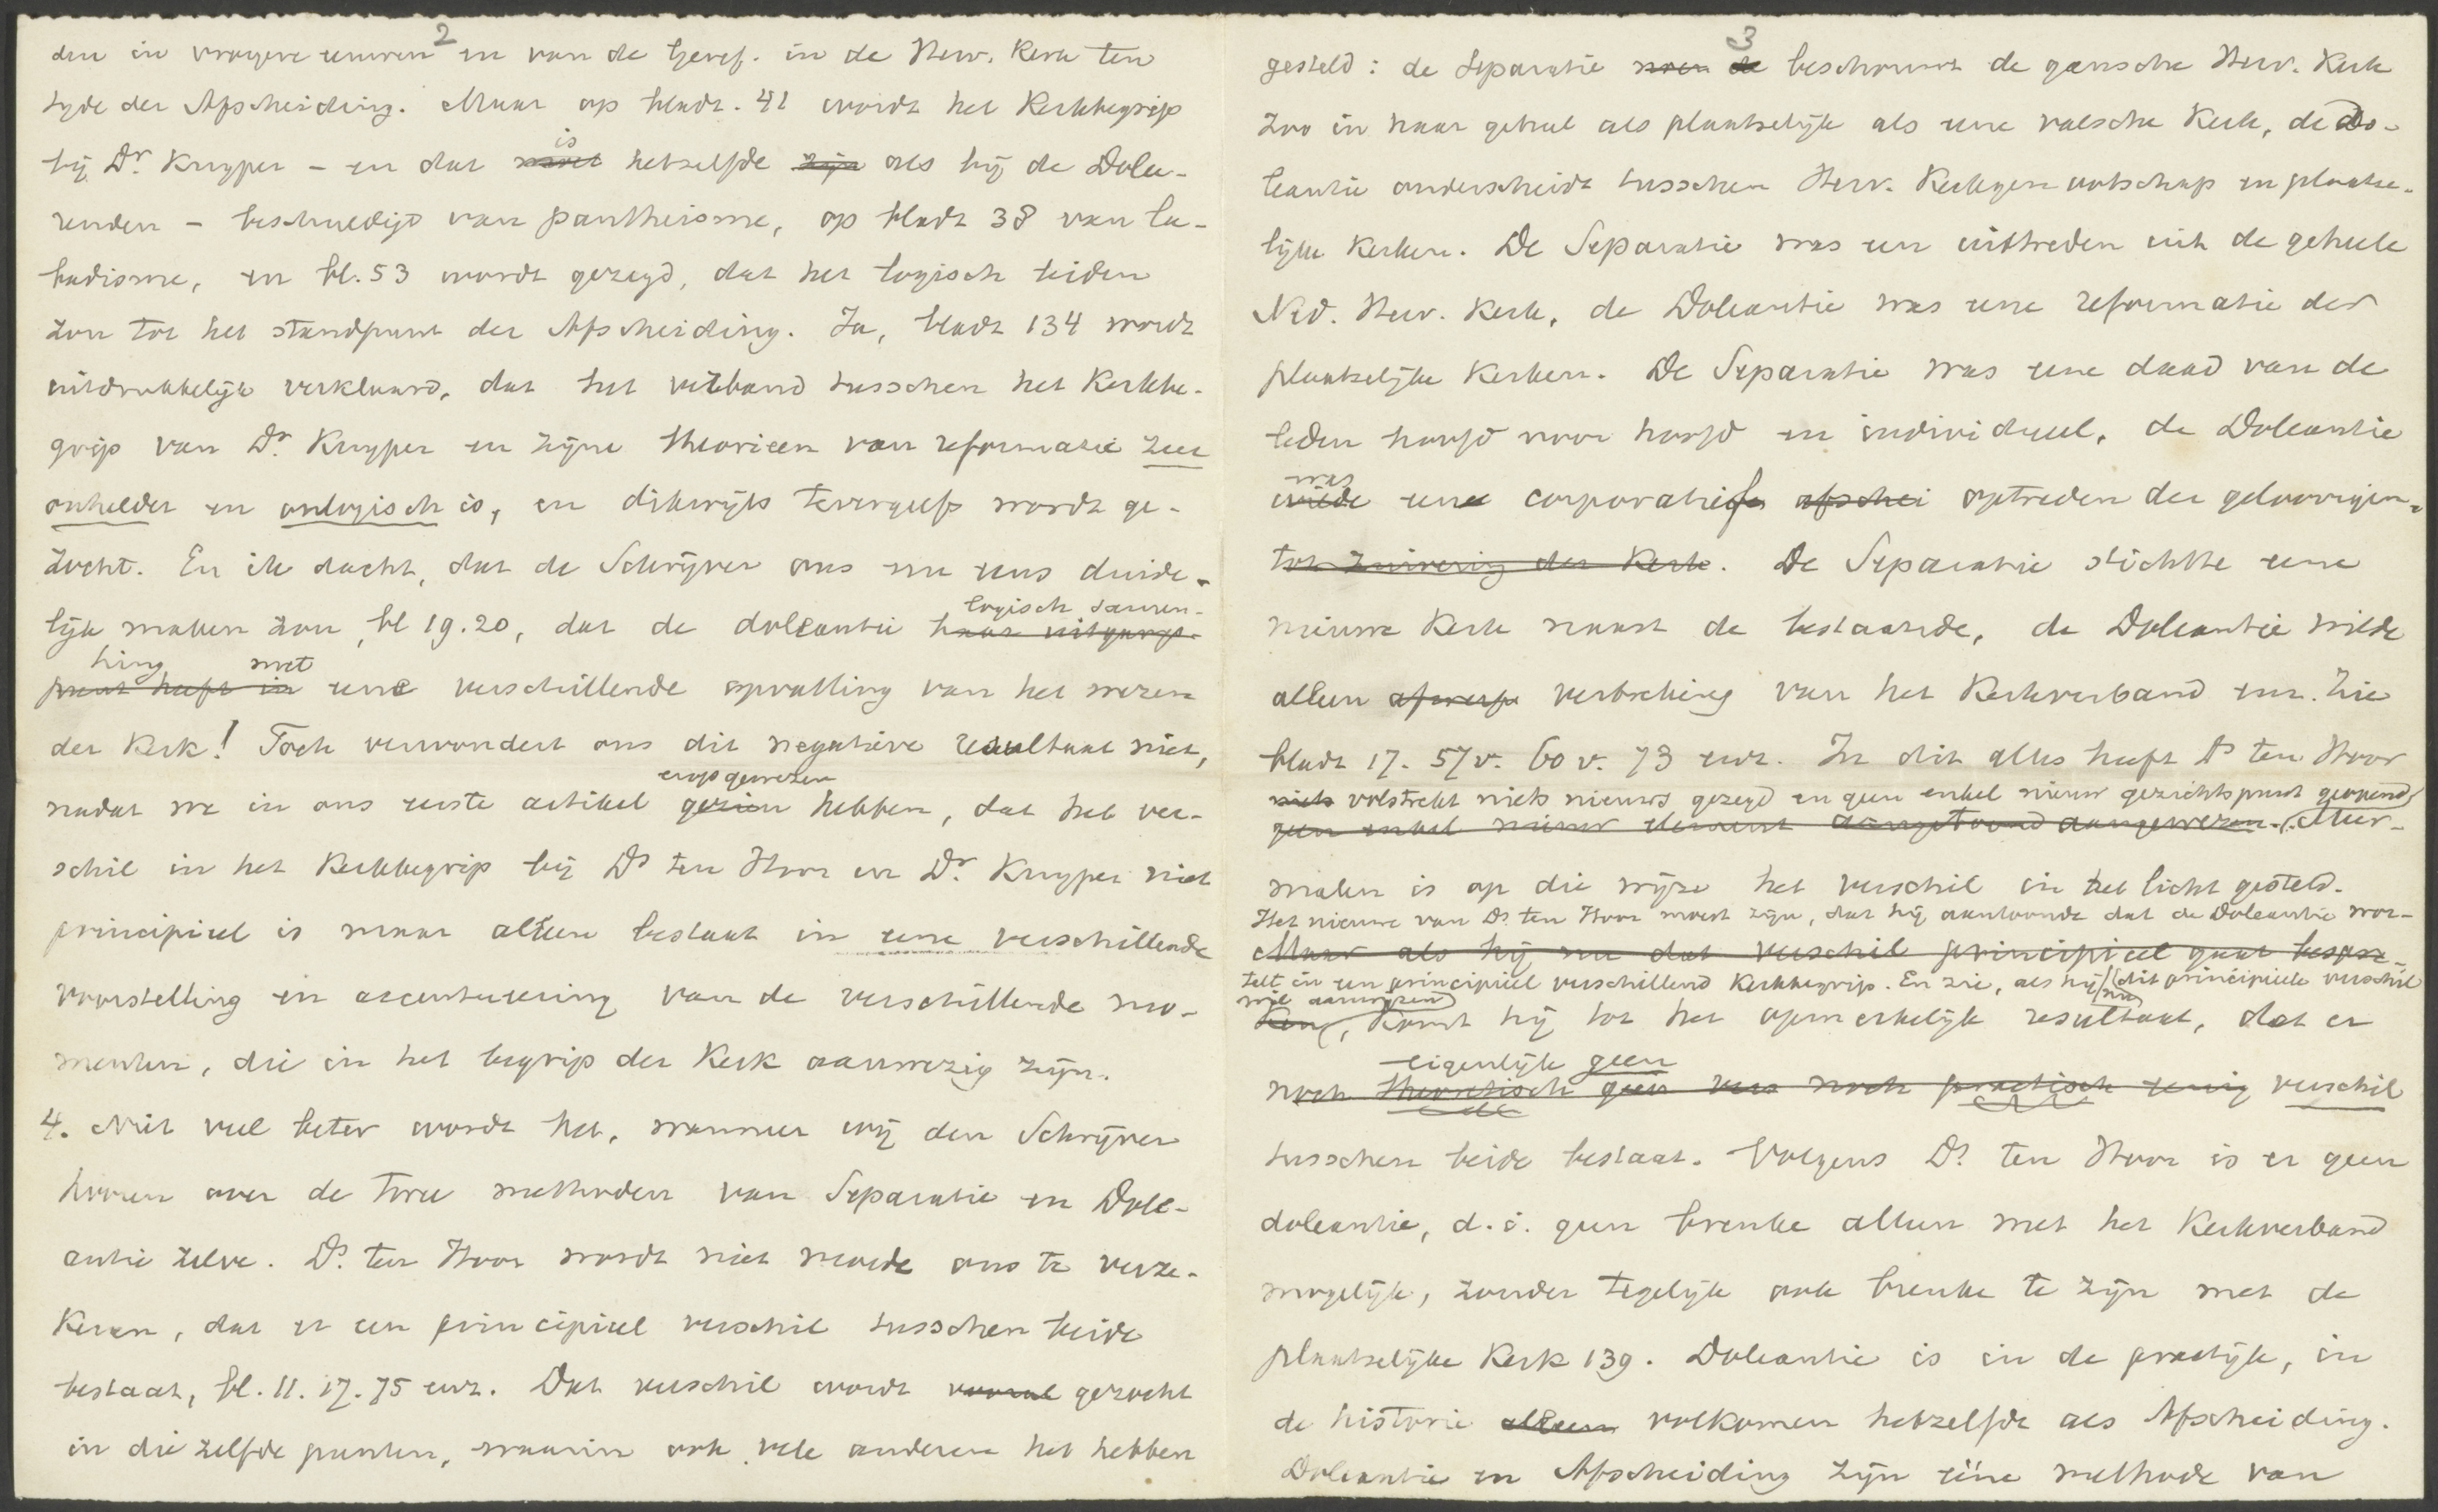 2
den in vroegere eeuwen en van de Geref. in de Herv. Kerk ten
tyde der Afscheiding. Maar op bladz. 41 wordt het Kerkbegrip
bij Dr. Kuyper – en dat is hetzelfde als bij de Dolee-
renden – beschuldigd van pantheisme, op bladz 38 van la-
badisme, en bl. 53 wordt gezegd, dat het logisch leiden
zou tot het standpunt der Afscheiding. Ja, bladz 134 wordt
uitdrukkelijk verklaard, dat het verband tusschen het Kerkbe-
grip van Dr. Kuyper en zijne theorieen van reformatie zeer
onhelder en onlogisch is, en dikwijls tevergeefs wordt ge-
zocht. En ik dacht, dat de Schrijver ons nu eens duide-
logisch samen-
lijk maken zou, bl 19.20, dat de doleantie haar uitgangs-
hing met
punt heeft in eene verschillende opvatting van het wezen
der Kerk! Toch verwondert ons dit negatieve resultaat niet,
erop gewezen
nadat we in ons eerste artikel gezien hebben, dat het ver-
schil in het Kerkbegrip bij Ds ten Hoor en Dr. Kuyper niet
principieel is maar alleen bestaat in eene verschillende
voorstelling en accentueering van de verschillende mo-
menten, die in het begrip der Kerk aanwezig zijn.
4. Niet veel beter wordt het, wanneer wij den Schrijver
hooren over de twee methoden van Separatie en Dole-
antie zelve. Ds. ten Hoor wordt niet moede ons te verze-
keren, dat er een principieel verschil tusschen beide
bestaat, bl. 11. 17. 75 enz. Dat verschil wordt vooral gezocht
in die zelfde punten, waarin ook vele anderen het hebben
3
gesteld: de Separatie de beschouwt de gansche Herv. Kerk
zoo in haar geheel als plaatselijk als eene valsche Kerk, de Do-
leantie onderscheidt tusschen Herv. Kerkgenootschap en plaatse-
lijke Kerken. De Separatie was een uittreden uit de geheele
Ned. Herv. Kerk, de Doleantie was eene reformatie der
plaatselijke Kerken. De Separatie was eene daad van de
leden hoofd voor hoofd en individueel, de Doleantie
was
wilde een corporatief afschei optreden der geloovigen
tot zuivering der Kerk. De Separatie stichtte eene
nieuwe Kerk naast de bestaande, de Doleantie wilde
alleen afwerp verbreking van het Kerkverband enz. Zie
bladz 17. 57v. 60 v. 73 enz. In dit alles heeft Ds ten Hoor
niets volstrekt niets nieuws gezegd en geen enkel nieuw gezichtspunt geopend
geen enkel nieuw element aangetoond aangewezen. Meer-
malen is op die wijze het verschil in het licht gesteld.
Het nieuwe van Ds. ten Hoor moest zijn, dat hij aantoonde dat de Doleantie wor-
Maar als hij nu dat verschil principieel gaat bespre-
telt in een principieel verschillend Kerkbegrip. En zie, als hij nu dit principieele verschil
wil aanwijzen
ken, komt hij tot het opmerkelijk resultaat, dat er
eigenlijk geen
noch theoretisch geen ver noch practisch eenig verschil
tusschen beide bestaat. Volgens Ds. ten Hoor is er geen
doleantie, d. i. geen breuke alleen met het Kerkverband
mogelijk, zonder tegelijk ook breuke te zijn met de
plaatselijke Kerk 139. Doleantie is in de practijk, in
de historie alleen volkomen hetzelfde als Afscheiding.
Doleantie en Afscheiding zijn ééne methode van